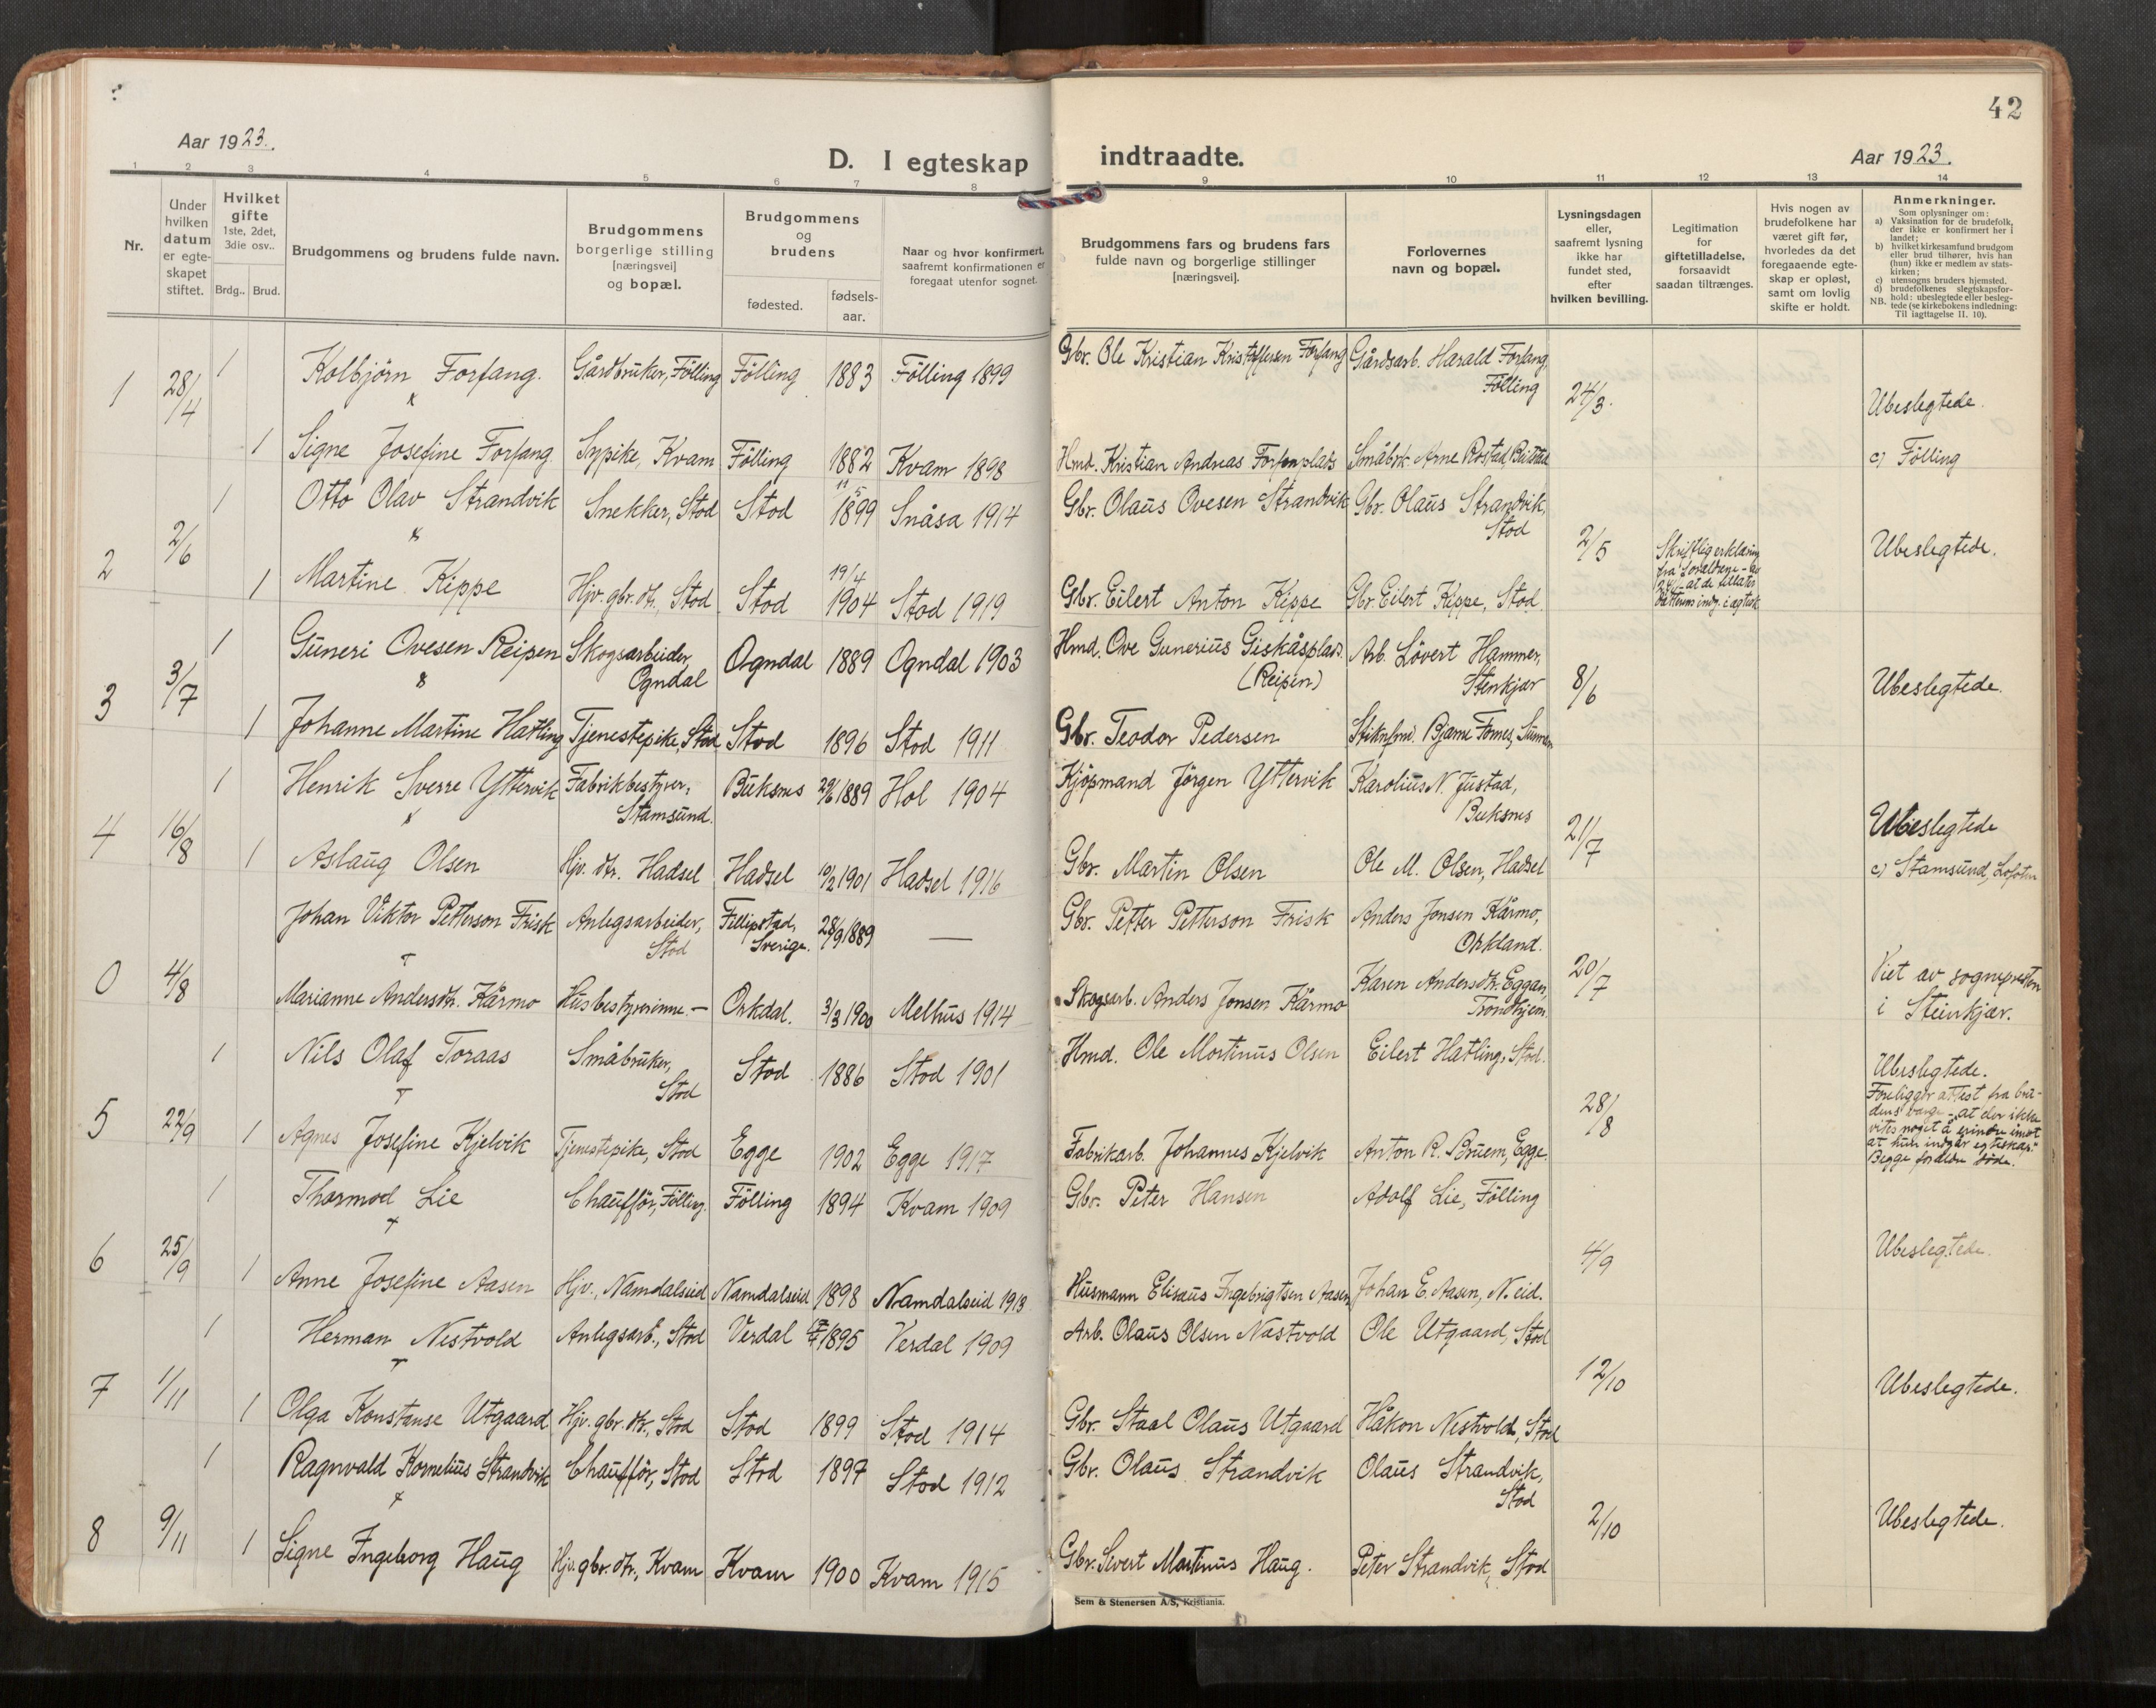 42
Aar 1923.
D. I egteskap indtraadte.
Aar 1923.
1 2 3 4 5 6 7 8 9 10 11 12 13 14
Nr.
Under hvilken datum er egteskapet stiftet.
Hvilket gifte 1ste, 2det, 3die osv..
Brdg.. Brud.
Brudgommens og brudens fulde navn.
Brudgommens borgerlige stilling [næringsvei] og bopæl.
Brudgommens og brudens
fødested.
fødsels-aar.
Naar og hvor konfirmert, saafremt konfirmationen er foregaat utenfor sognet.
Brudgommens fars og brudens fars fulde navn og borgerlige stillinger [næringsvei].
Forlovernes navn og bopæl.
Lysningsdagen eller, saafremt lysning ikke har fundet sted, efter hvilken bevilling.
Legitimation for giftetilladelse, forsaavidt saadan tiltrænges.
Hvis nogen av brudefolkene har været gift før, hvorledes da det foregaaende egteskap er opløst, samt om lovlig skifte er holdt.
Anmerkninger.
Som oplysninger om:
a) Vaksination for de brudefolk, der ikke er konfirmert her i landet;
b) hvilket kirkesamfund brudgom eller brud tilhører, hvis han (hun) ikke er medlem av statskirken;
c) utensogns bruders hjemsted.
d) brudefolkenes slegtskapsforhold: ubeslegtede eller beslegtede (se kirkebokens indledning: Til iagttagelse II. 10).
NB.
1 28/4 1 Kolbjörn Forfang. Gårdbruker, Fölling Fölling 1883 Fölling 1899 Gbr. Ole Kristian Kristoffersen Forfang Gårdsarb. Harald Forfang, Fölling 24/3. Ubeslegtede.
1 Signe Josefine Forfang Sypike, Kvam Fölling 1882 Kvam 1898 Hmd. Kristian Andreas Forfangplads Småbrk. Arne Rostad, Beitstad c) Fölling
2 2/6 1 Otto Olav Strandvik Snekker, Stod Stod 11/5 1899 Snåsa 1914 Gbr. Olaus Ovesen Strandvik Gbr. Olaus Strandvik, Stod 2/5 Ubeslegtede.
Skriftlig erklæring fra forældrene at de tillater datterens indg. i egtesk.
1 Martine Kippe Hjv. gbr. dtr., Stod Stod 19/4 1904 Stod 1919 Gbr. Eilert Anton Kippe Gbr. Eilert Kippe, Stod
3 3/7 1 Guneri Ovesen Reipen Skogsarbeider, Ogndal Ogndal 1889 Ogndal 1903 Hmd. Ove Gunerius Giskåsplads (Reipen) Arb. Lövert Hammer, Stenkjær 8/6 Ubeslegtede.
1 Johanne Martine Hatling Tjenestepike, Stod Stod 1896 Stod 1911 Gbr. Teodor Pedersen Bjarne Fornes,
4 16/8 1 Henrik Sverre Yttervik Fabrikbestyrer, Stamsund. Buksnes 29/6 1889 Hol 1904 Kjöpmand Jörgen Yttervik Karolius N. Justad, Buksnes 21/7 Ubeslegtede
1 Aslaug Olsen Hjv. dtr. Hadsel Hadsel 10/2 1901 Hadsel 1916 Gbr. Martin Olsen Ole M. Olsen, Hadsel c) Stamsund, Lofoten
0 4/8 Johan Viktor Petterson Frisk Anlegsarbeider, Stod Fillipstad, Sverige. 28/9 1889 — Gbr. Petter Petterson Frisk Anders Jonsen Kårmo, Orkland. 20/7 Viet av sognepresten i Steinkjær.
Marianne Andersdtr. Kårmo Husbestyrerinne. — Orkdal. 3/3 1900 Melhus 1914 Skogsarb. Anders Jonsen Kårmo Karen Andersdtr. Eggan, Trondhjem.
5 22/9 1 Nils Olaf Toraas Småbruker, Stod Stod 1886 Stod 1901 Hmd. Ole Mortinus Olsen Eilert Hatling, Stod. 28/8 Ubeslegtede.
Foreligger attest fra brudens verge - at der ikke vites noget å erindre imot at hun indgår egteskap. Begge foreldre döde.
1 Agnes Josefine Kjelvik Tjenestepike, Stod Egge 1902 Egge 1917 Fabrikarb. Johannes Kjelvik Anton R. Bruem, Egge.
6 25/9 1 Thormod Lie Chaufför, Fölling. Fölling 1894 Kvam 1909 Gbr. Peter Hansen Adolf Lie, Fölling 4/9 Ubeslegtede.
1 Anne Josefine Aasen Hjv., Namdalseid Namdalseid 1898 Namdalseid 1913 Husmann Elisæus Ingebrigtsen Aasen Johan E. Aasen, N.eid.
7 1/11 1 Herman Nestvold Anlegsarb., Stod Verdal 1895 Verdal 1909 Arb. Olaus Olsen Nastvold Ole Utgaard, Stod 12/10 Ubeslegtede.
1 Olga Konstanse Utgaard Hjv. gbr. dtr., Stod Stod 1899 Stod 1914 Gbr. Staal Olaus Utgaard Håkon Nestvold, Stod
8 9/11 1 Ragnvald Kornelius Strandvik Chaufför, Stod Stod 1897 Stod 1912 Gbr. Olaus Strandvik Olaus Strandvik, Stod 2/10 Ubeslegtede.
1 Signe Ingeborg Haug Hjv. gbr. dtr., Kvam Kvam 1900 Kvam 1915 Gbr. Sivert Martinus Haug. Peter Strandvik, Stod
Sem & Stenersen A/S, Kristiania.